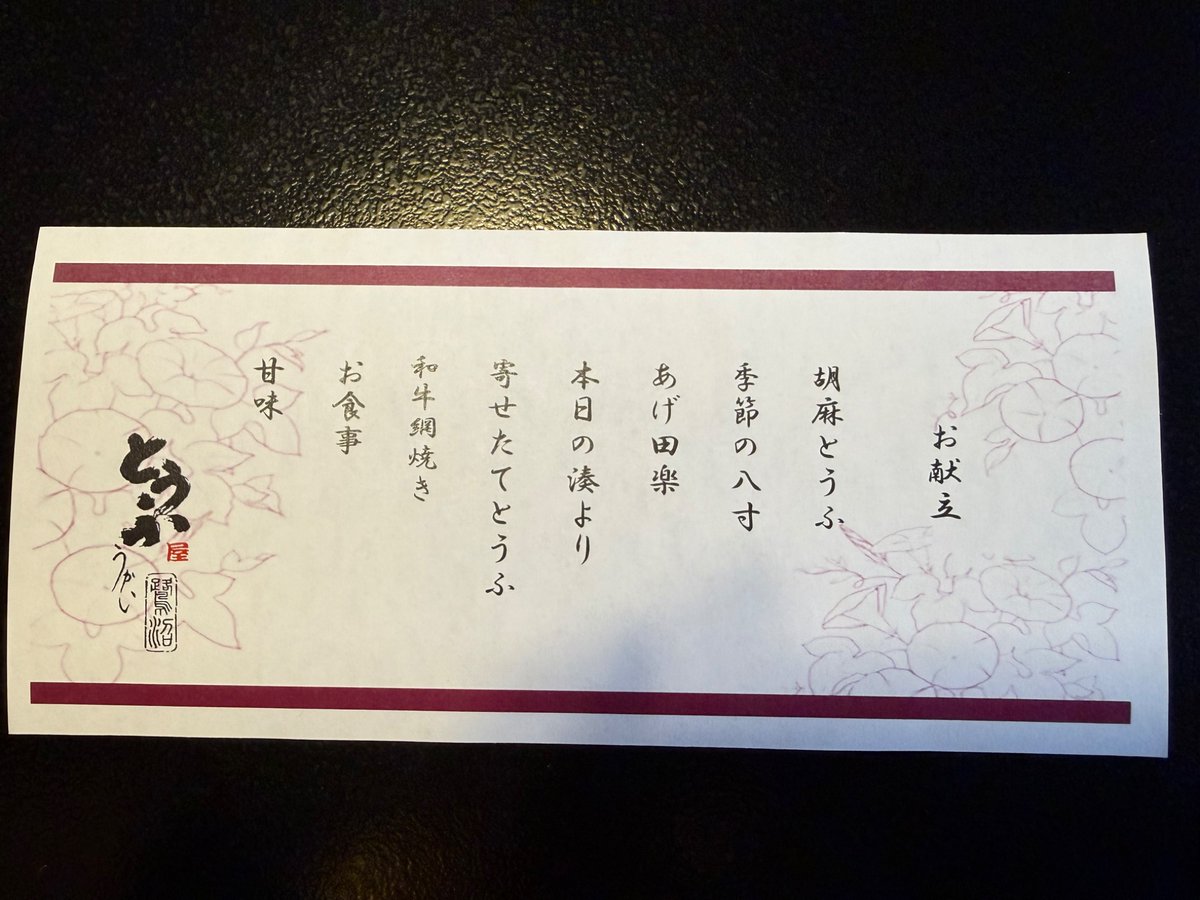 お献立
胡麻とうふ
季節の八寸
あげ田楽
本日の湊より
寄せたてとうふ
和牛網焼き
お食事
甘味
とうふ
屋
うかい
鷺沼